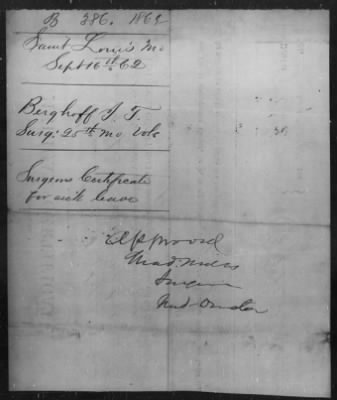 B 386. 1862
Saint Louis Mo
Sept 16th 62
Berghoff J. F.
Surg: 25th Mo Vols
Surgeons Certificate
for sick leave
Approved
Surgeon
Med. Director